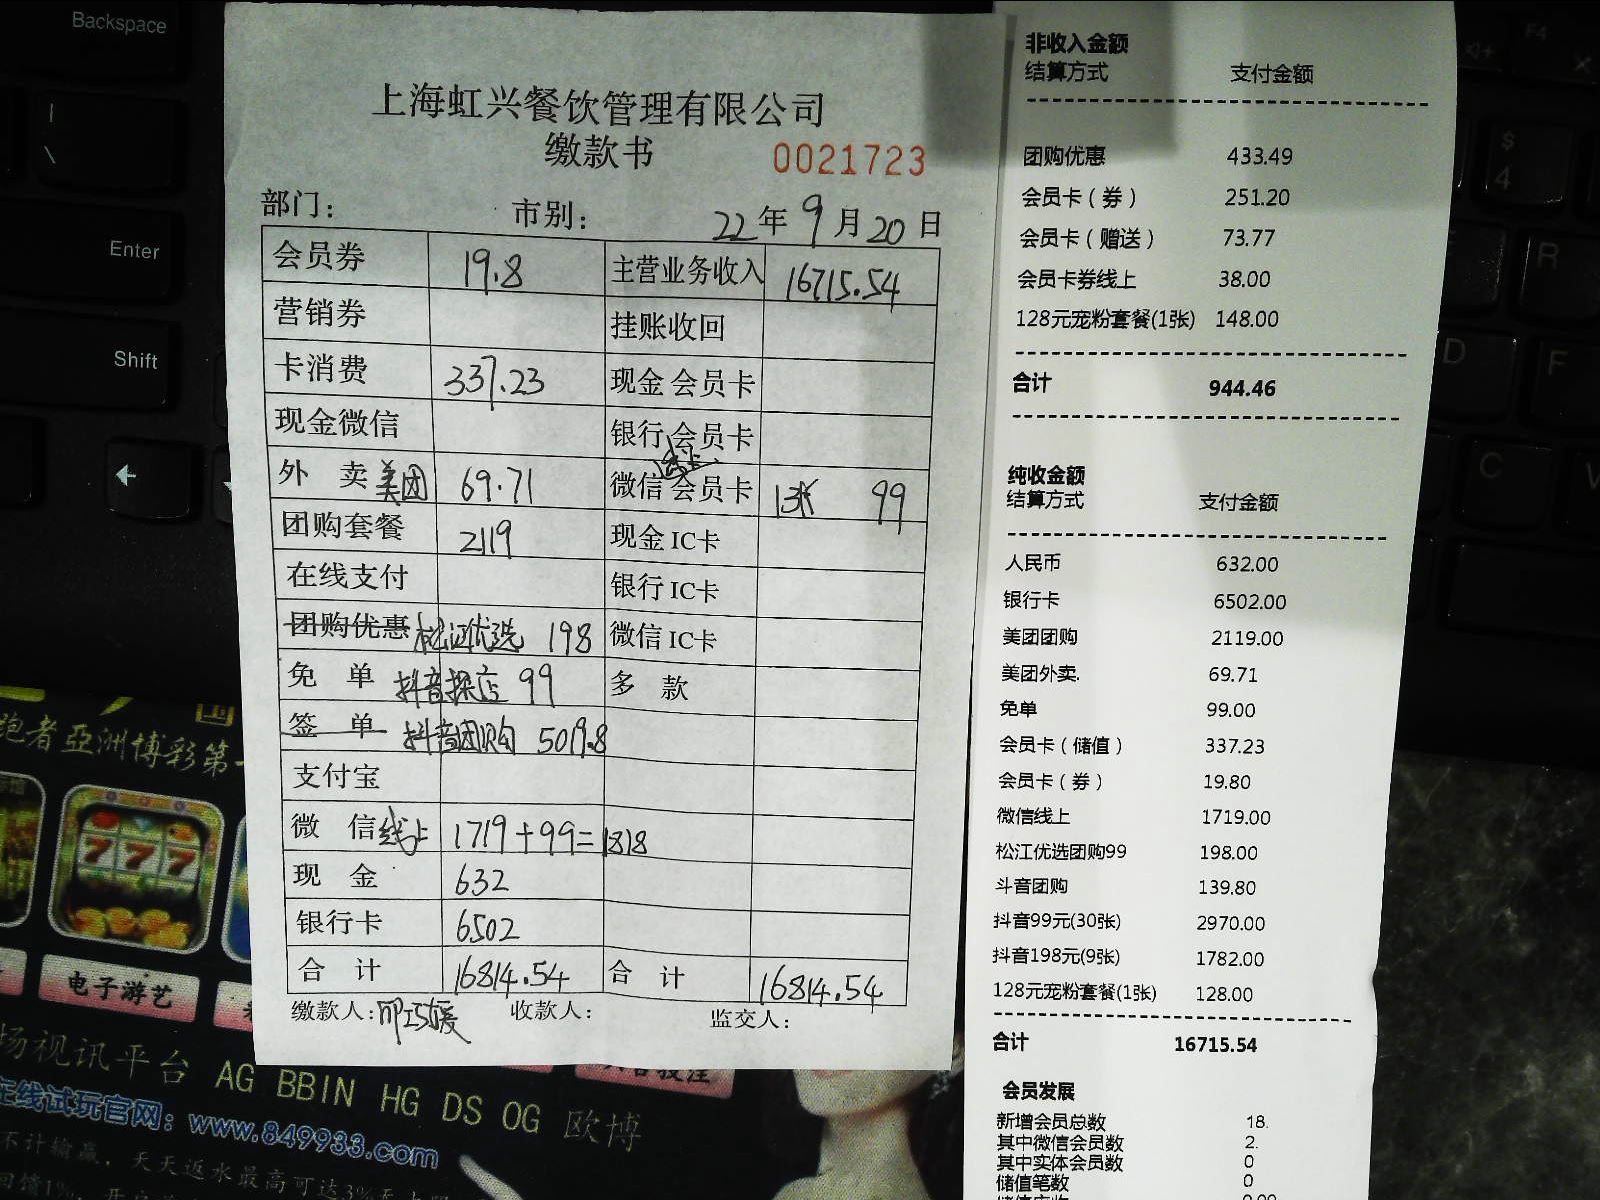 上海虹兴餐饮管理有限公司
缴款书
0021723
部门： 市别： 22年9月20日
会员券 19.8 主营业务收入 16715.54
营销券 挂账收回
卡消费 337.23 现金会员卡
现金微信 银行会员卡
外卖美团 69.71 微信会员卡 99
团购套餐 2119 现金IC卡
在线支付 银行IC卡
团购优惠 松江优选 198 微信IC卡
免单 抖音探店 99 多款
签单 抖音团购 5019.8
支付宝
微信线上 1719+99=1818
现金 632
银行卡 6502
合计 16814.54 合计 16814.54
缴款人： 收款人： 监交人：
非收入金额
结算方式 支付金额
团购优惠 433.49
会员卡（券） 251.20
会员卡（赠送） 73.77
会员卡券线上 38.00
128元宠粉套餐(1张) 148.00
合计 944.46
纯收金额
结算方式 支付金额
人民币 632.00
银行卡 6502.00
美团团购 2119.00
美团外卖. 69.71
免单 99.00
会员卡（储值） 337.23
会员卡（券） 19.80
微信线上 1719.00
松江优选团购99 198.00
斗音团购 139.80
抖音99元(30张) 2970.00
抖音198元(9张) 1782.00
128元宠粉套餐(1张) 128.00
合计 16715.54
会员发展
新增会员总数 18.
其中微信会员数 2.
其中实体会员数 0
储值笔数 0
Backspace
Enter
Shift
|
\
F4
$
4
R
D
F
C
跑者亞洲博彩第一
777
电子游艺
场视讯平台 AG BBIN HG DS OG 欧博
在线试玩官网：www.849933.com
不计输赢，天天返水最高可达3%